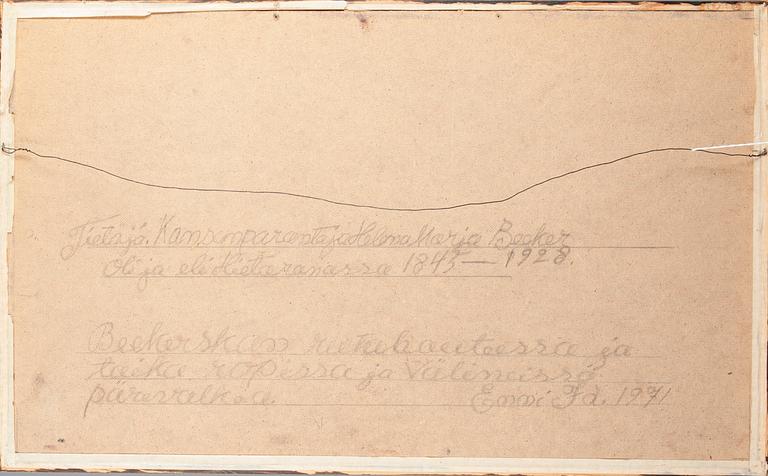 Tietäjä. Kansanparantaja Helena Marja Becker
Oli ja eli Hietaranassa 1845 — 1928.
Beckerskan rietuhauteessa ja
taika ropissa ja välineissä
pärevalkea. Enni Id. 1971